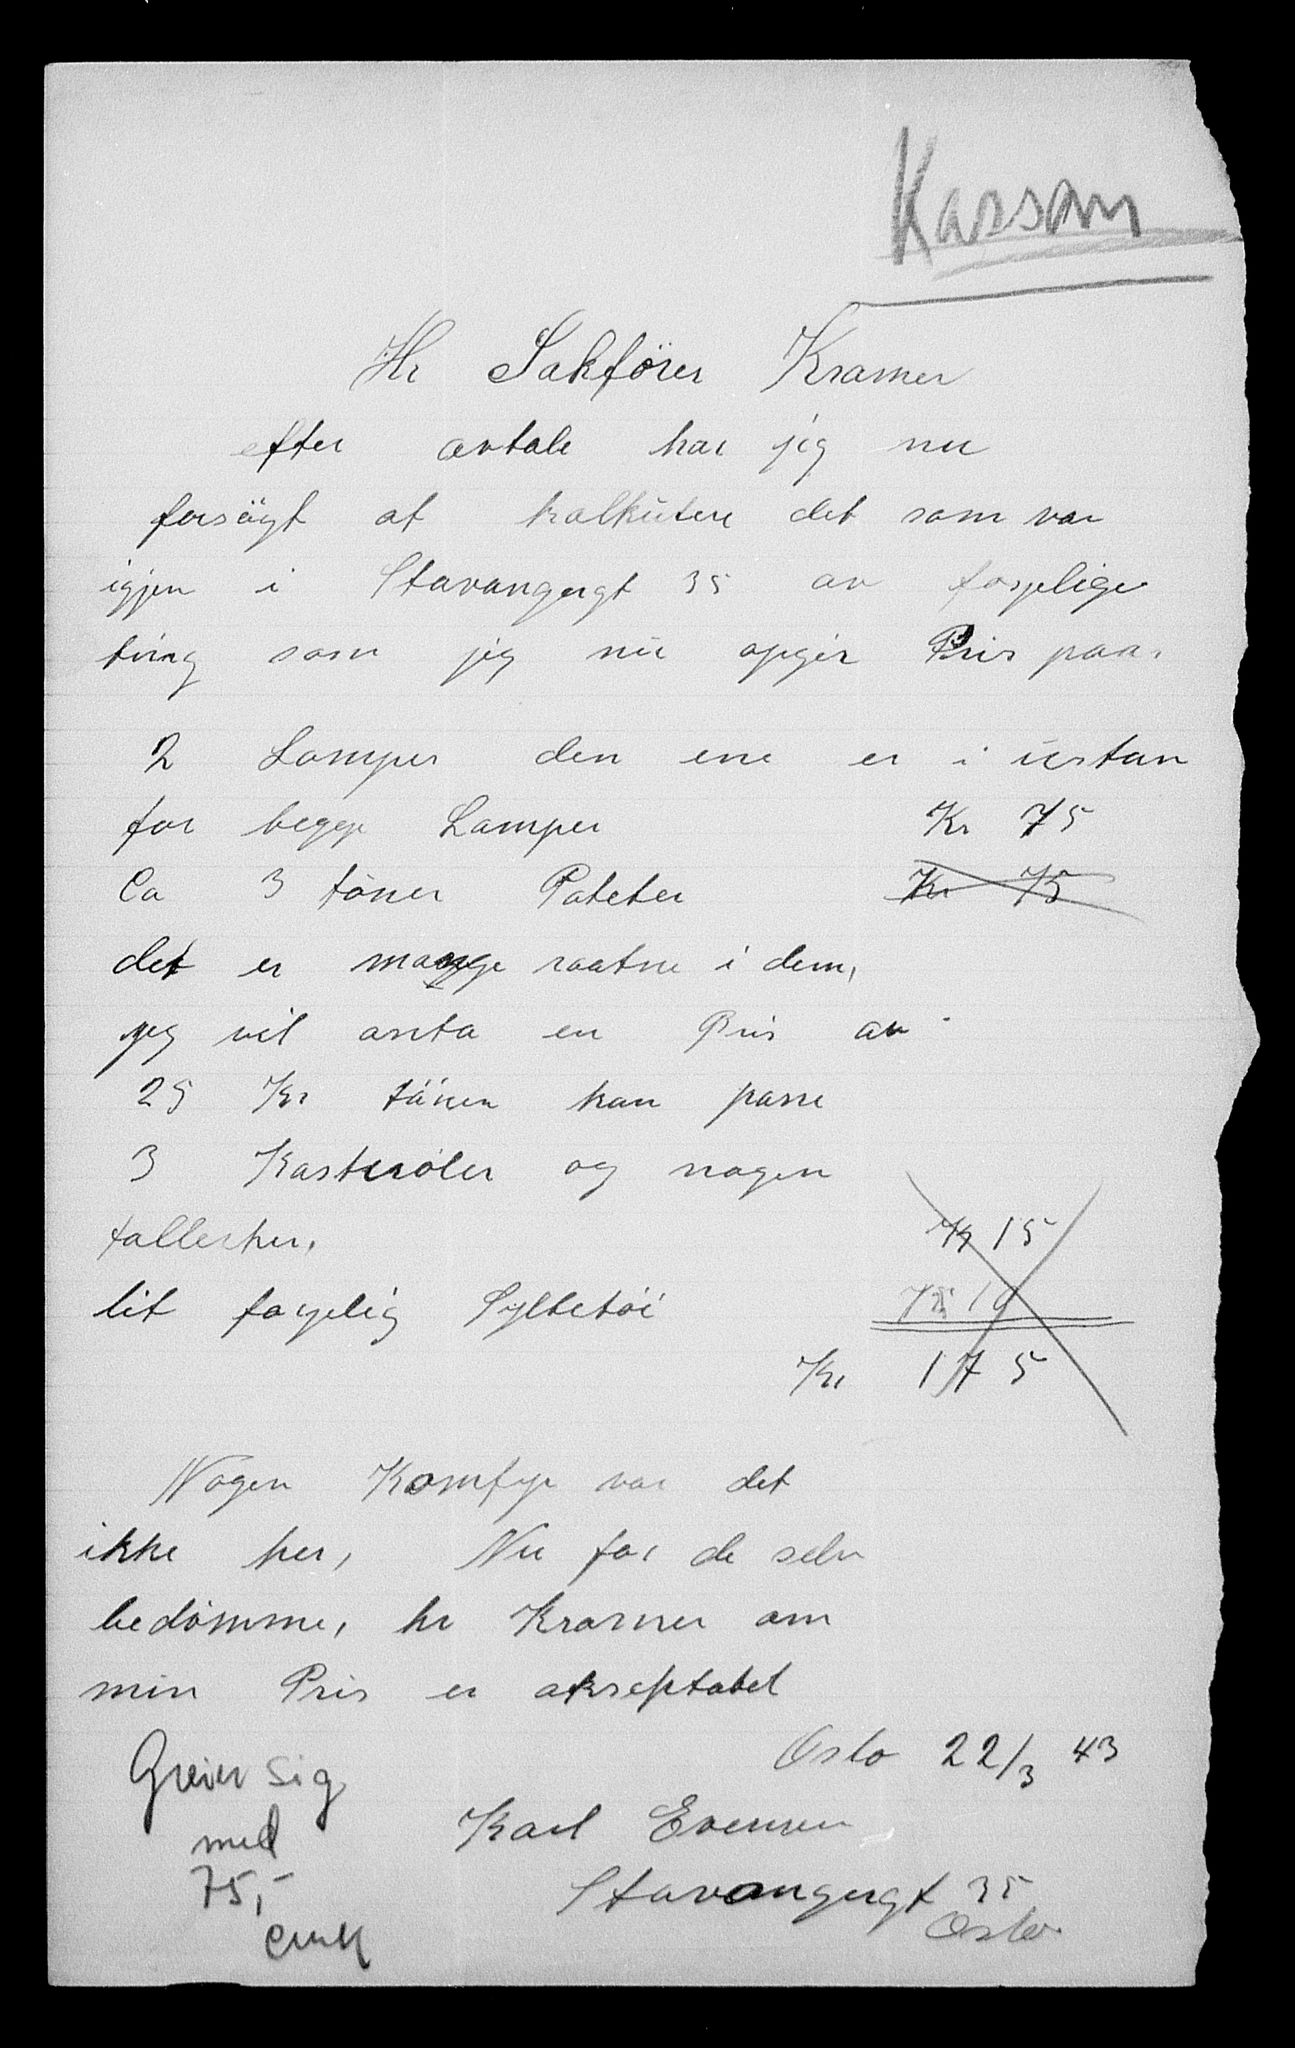 Karsom
Hr Sakförer Kramer
efter avtale har jeg nu
forsögt at kalkulere det som var
igjen i Stavangergt 35 av forsjelige
ting som jeg nu opgir Pris paa.
2 Lamper den ene er i ustan
for begge Lamper Kr 75
Ca 3 töner Poteter Kr 75
det er mange raatne i dem,
jeg vil anta en Pris av
25 Kr tönen kan passe
3 Kasteröler og nogen
tallerker. Kr 15
lit forsjelig Syltetöi Kr 10
Kr 175
Nogen Komfyr var det
ikke her, Nu far de selv
bedömme, hr Kramer om
min Pris er akseptabel
Oslo 22/3 43
Greier sig
med
75,-
Karl Evensen
Stavangergt 35
Oslo